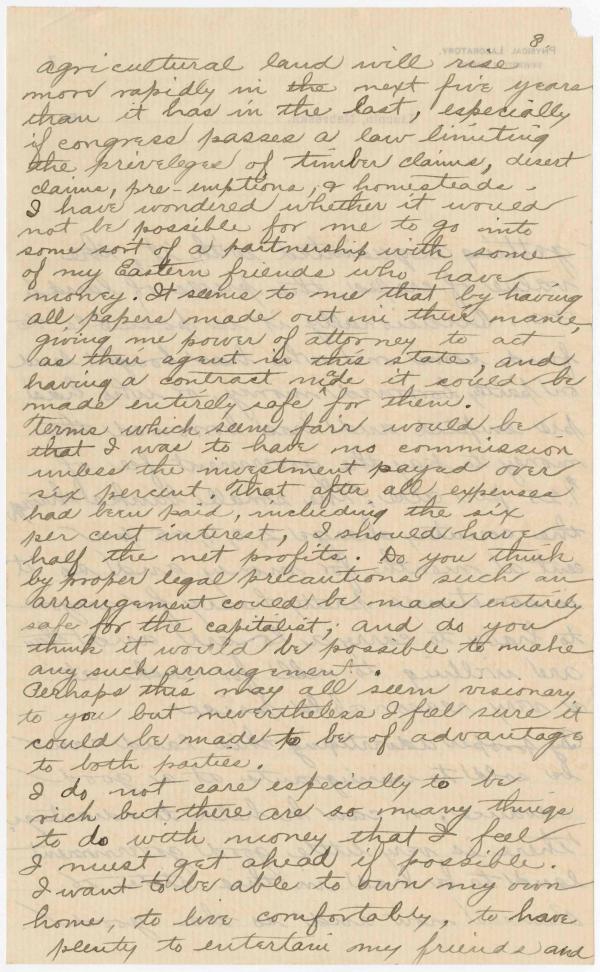 8.
agricultural land will rise
more rapidly in the next five years
than it has in the last, especially
if congress passes a law limiting
the priveleges of timber claims, desert
claims, pre-emptions, & homesteads.
I have wondered whether it would
not be possible for me to go into
some sort of a partnership with some
of my Eastern friends who have
money. It seems to me that by having
all papers made out in their name,
giving me power of attorney to act
as their agent in this state, and
having a contract made it could be
made entirely safe for them.
Terms which seem fair would be
that I was to have no commission
unless the investment payed over
six percent. That after all expenses
had been paid, including the six
per cent interest, I should have
half the net profits. Do you think
by proper legal precautions such an
arrangement could be made entirely
safe for the capitalist; and do you
think it would be possible to make
any such arrangement.
Perhaps this may all seem visionary
to you but nevertheless I feel sure it
could be made to be of advantage
to both parties.
I do not care especially to be
rich but there are so many things
to do with money that I feel
I must get ahead if possible.
I want to be able to own my own
home, to live comfortably, to have
plenty to entertain my friends and